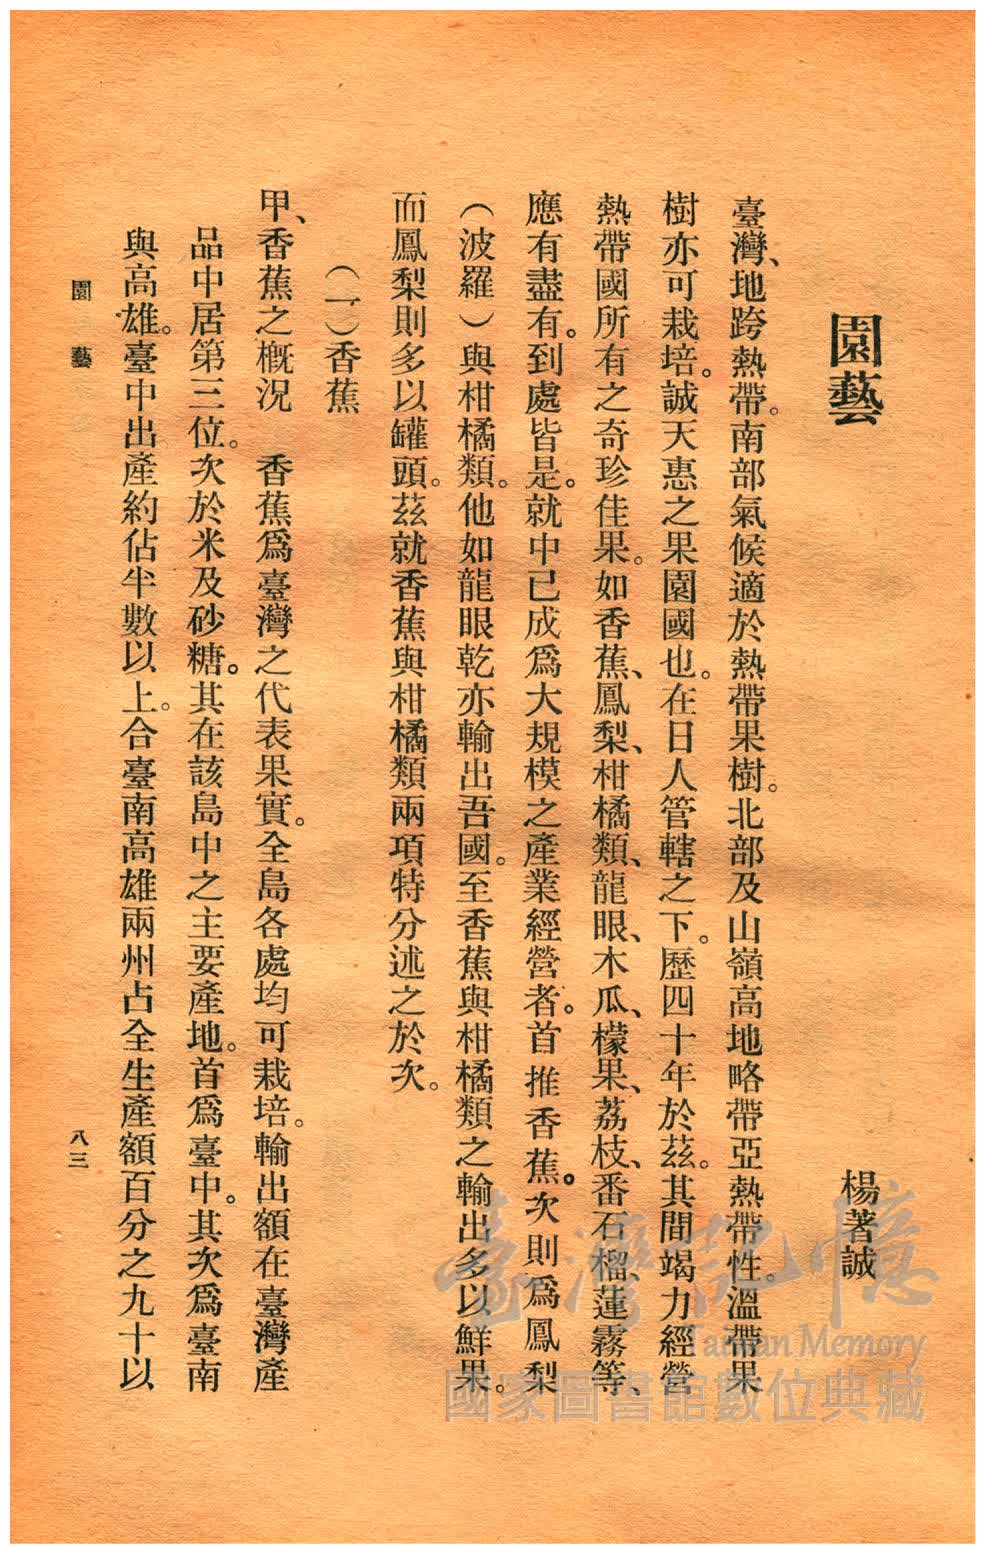 園藝
楊著誠
臺灣、地跨熱帶。南部氣候適於熱帶果樹。北部及山嶺高地略帶亞熱帶性。溫帶果
樹亦可栽培。誠天惠之果園國也。在日人管轄之下。歷四十年於茲。其間竭力經營
熱帶國所有之奇珍佳果。如香蕉、鳳梨、柑橘類、龍眼、木瓜、檬果、荔枝、番石榴、蓮霧等、
應有盡有。到處皆是。就中已成爲大規模之產業經營者。首推香蕉。次則爲鳳梨
（波羅）與柑橘類。他如龍眼乾亦輸出吾國。至香蕉與柑橘類之輸出多以鮮果。
而鳳梨則多以罐頭。茲就香蕉與柑橘類兩項特分述之於次。
（一）香蕉
甲、香蕉之概況　香蕉爲臺灣之代表果實。全島各處均可栽培。輸出額在臺灣產
品中居第三位。次於米及砂糖。其在該島中之主要產地。首爲臺中。其次爲臺南
與高雄。臺中出產約佔半數以上。合臺南高雄兩州占全生產額百分之九十以
園藝
八三
臺灣記憶
Taiwan Memory
國家圖書館數位典藏